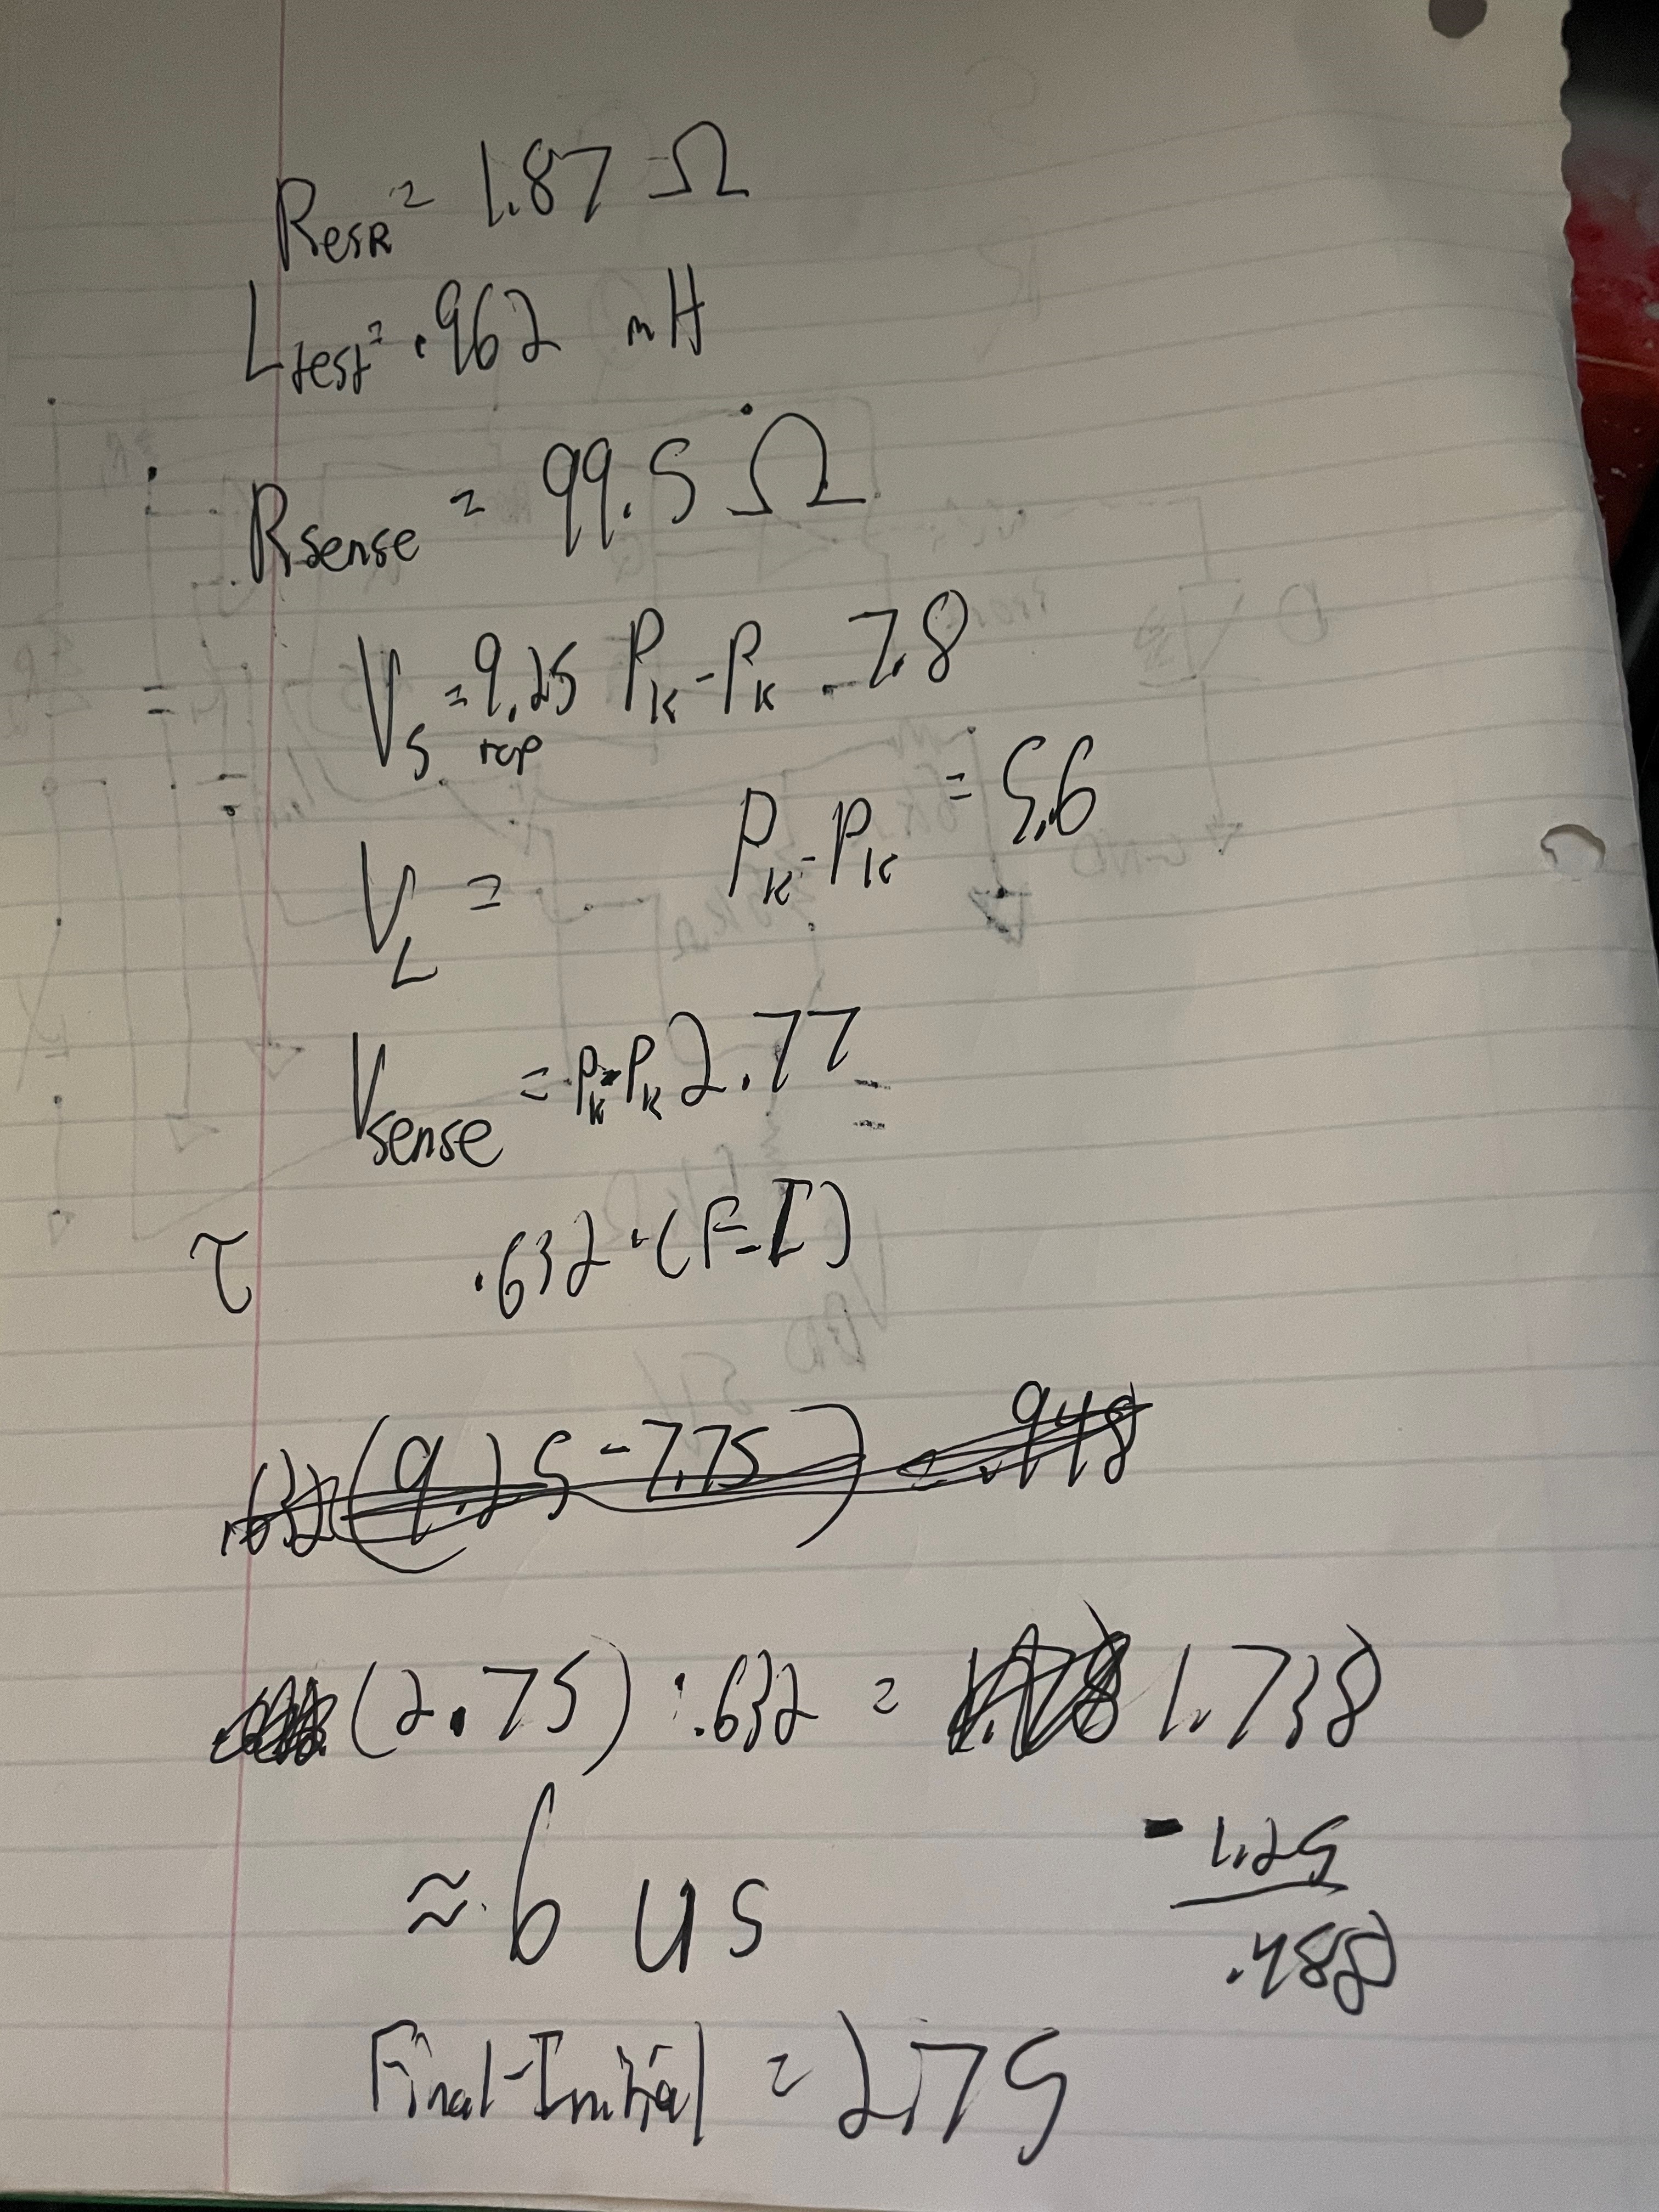 R_ESR = 1.87 Ω
L_test = .962 mH
R_sense = 99.5 Ω
V_S = 9.25 Pk-Pk 7.8
top
V_L = Pk-Pk = 5.6
V_sense = Pk-Pk 2.77
τ .632·(F-I)
.632(9.25-7.75) = .948
(2.75)·.632 = 1.738
-1.25
≈ 6 us
.488
Final-Initial = 2.75